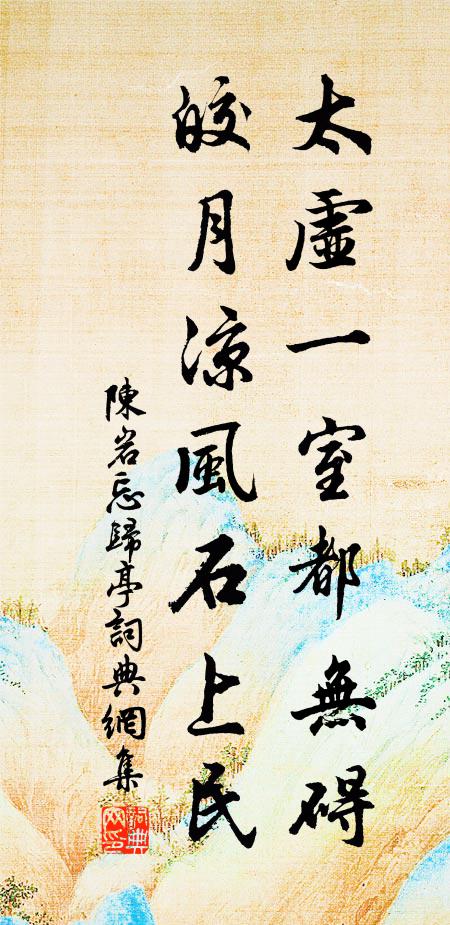 太虛一室都無碍
皎月涼風石上民
陳岩忘歸亭詞典網集
詞典网印